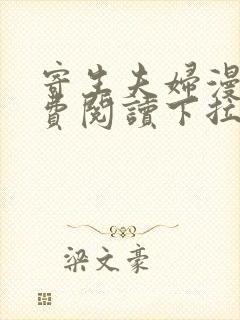 寄生夫婦漫
費閱讀下拉
梁文豪